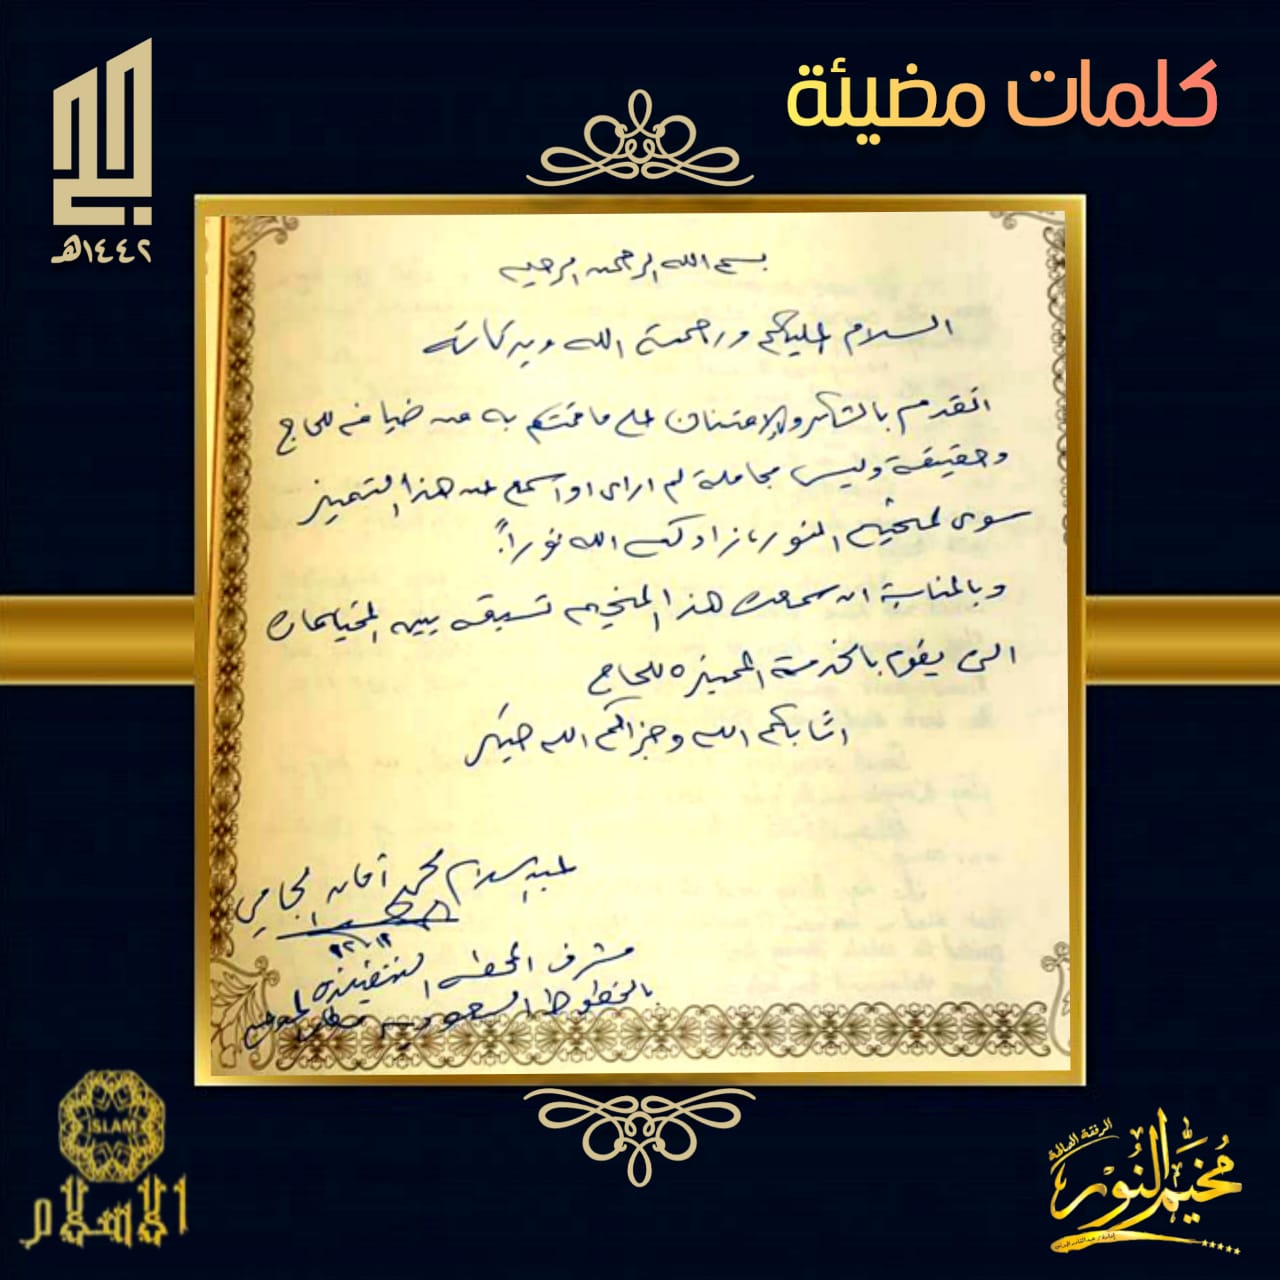 كلمات مضيئة
١٤٤٢هـ
بسم الله الرحمن الرحيم
السلام عليكم ورحمة الله وبركاته
اتقدم بالشكر والإمتنان على ما قمتم به من ضيافه للحاج
وحقيقة وليس مجاملة لم ارى او اسمع عن هذا التميز
سوى لمخيم النور، زادكم الله نوراً.
وبالمناسبة ان سمعت هذا المخيم تسبقه بين المخيمات
التى يقوم بالخدمة المميزه للحاج
اثابكم الله وجزاكم الله خير
عبدالسلام محمد أمان الجامي
مشرف المحطه
بالخطوط السعودية
ISLAM
الاسلام
الرفقة الصالحة
مخيم النور